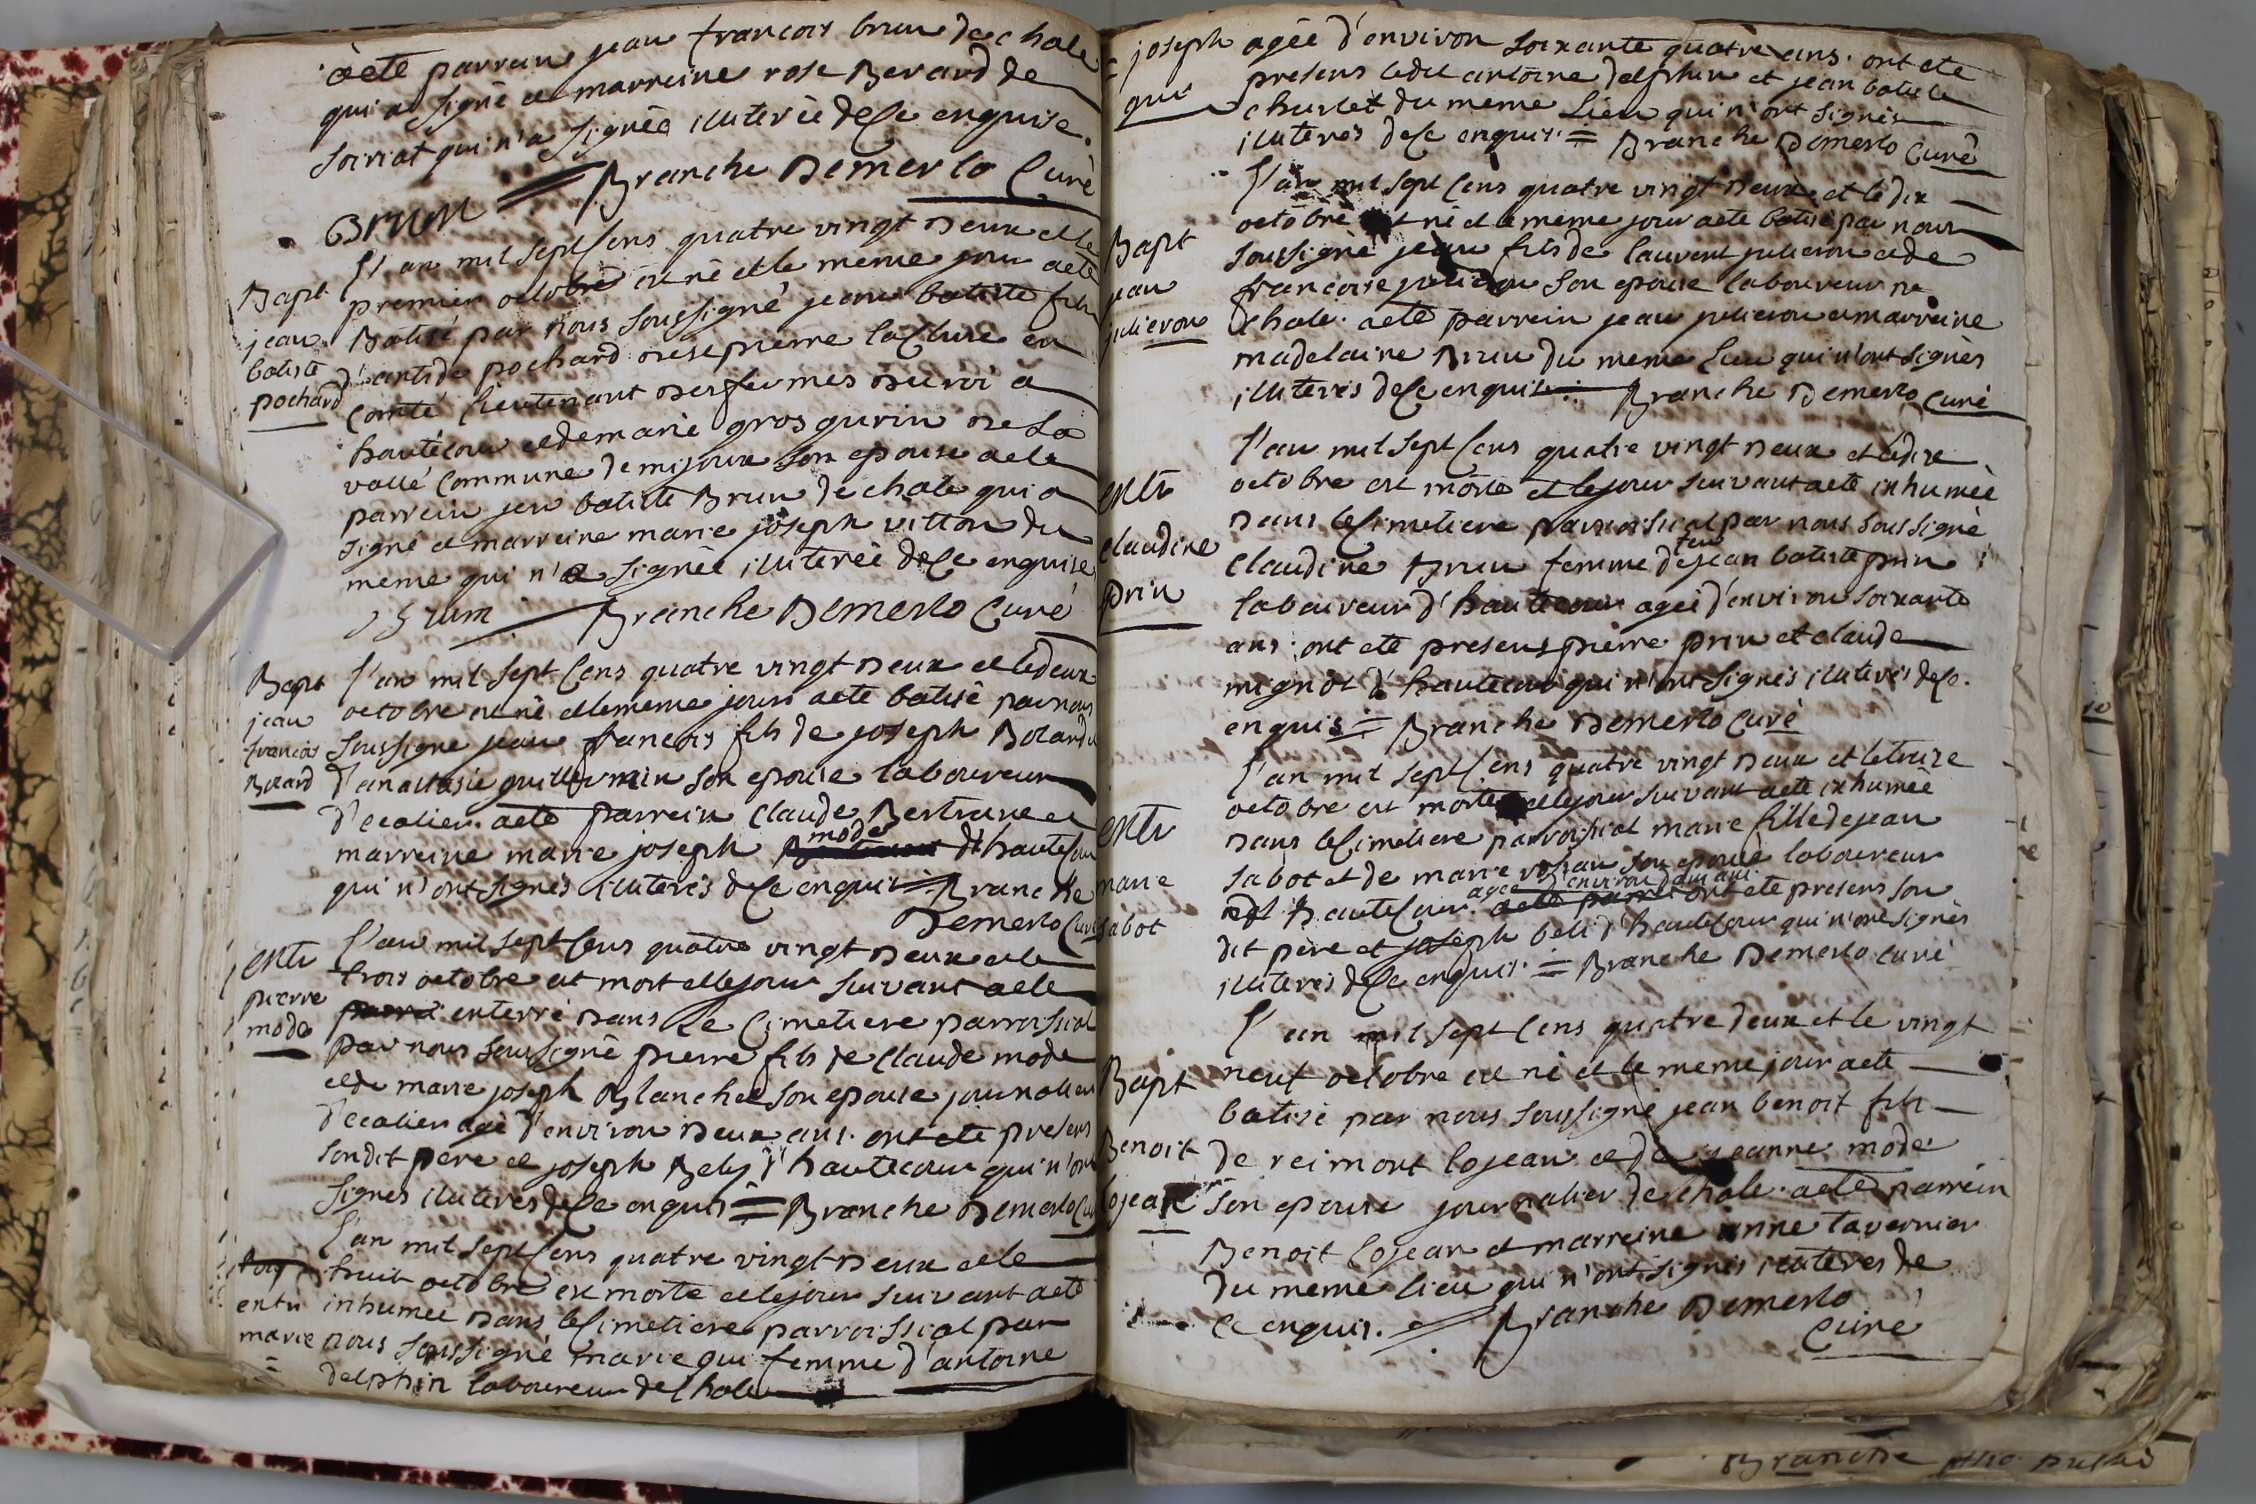 aete parrain jean francois brun de chale
qui a signé et marreine rose Berard de
soiriat qui n'a signée illiterée de ce enquise.
Branche Demerlo Curé
Brun
Bapt
jean
batiste
pochard
l'an mil sept cens quatre vingt deux et le
premier octobre est né et le meme jour aete
Batisé par nous soussigné jean batiste fils
pochard de st pierre la cluse en
comté lieutenant des fermes du roi a
hautecour et de marie gros gurin de la
vallé commune de mijoux son epouse aete
parrein jean batiste Brun de chale qui a
signé et marreine marie joseph vitton du
meme qui n'a signée illiterée de ce enquise
Brun Branche Demerlo Curé
Bapt
jean
francois
Botard
l'an mil sept cens quatre vingt deux et le deux
octobre est né et le meme jour aete batisé par nous
soussigne jean francois fils de joseph Botard et
d'anastasie guillermin son epouse laboureur
d'ecolier. aete parrein Claude Bertrane et
marreine marie joseph mode d'hautecour
qui n'ont signés illiterés de ce enquis Branche
Demerlo Curé
entr
pierre
mode
l'an mil sept cens quatre vingt deux et le
trois octobre est mort et le jour suivant aete
enterré dans le cimetiere parroissial
par nous soussigné pierre fils de claude mode
et de marie joseph Blanchet son epouse journalier
d'ecolier agé d'environ deux ans. ont ete presens
son dit pere et joseph Bely d'hautecour qui n'ont
signés illiterés de ce enquis = Branche Demerlo Cu
entr
marie
l'an mil sept cens quatre vingt deux et le
huit octobre est morte et le jour suivant aete
inhumée dans le cimetiere parroissial par
nous soussigné marie qui femme d'antoine
delphin laboureur de chale
joseph
qui
agée d'environ soixante quatre ans. ont ete
presens ledit antoine delphin et jean batiste
churlet du meme lieu qui n'ont signés
illiterés de ce enquis = Branche Demerlo Curé
Bapt
jean
julieron
l'an mil sept cens quatre vingt deux et le dix
octobre est né et le meme jour aete batisé par nous
soussigné jean fils de laurent julieron et de
francoise julieron son epouse laboureur de
chale. aete parrein jean julieron et marreine
madelaine Brun du meme lieu qui n'ont signés
illiterés de ce enquis Branche Demerlo Curé
entr
claudine
prin
l'an mil sept cens quatre vingt deux et le dix
octobre est morte et le jour suivant aete inhumée
dans le cimetiere parroissial par nous soussigné
feu
claudine Brun femme de jean batiste prin
laboureur d'hautecour agée d'environ soixante
ans. ont ete presens pierre prin et claude
mignot d'hautecour qui n'ont signés illiterés de ce
enquis = Branche Demerlo Curé
entr
marie
sabot
l'an mil sept cens quatre vingt deux et le treize
octobre est morte et le jour suivant aete inhumée
dans le cimetiere parroissial marie fille de jean
sabot et de marie son epouse laboureur
agée d'environ deux ans
d'hautecour. ont ete presens son
dit père et joseph beli d'hautecour qui n'ont signés
illiterés de ce enquis = Branche Demerlo curé
Bapt
Benoit
lojean
l'an mil sept cens quatre deux et le vingt
neuf octobre est né et le meme jour aete
batisé par nous soussigné jean benoit fils
de reimont lojean et de jeanne mode
son epouse journalier de chale. aete parrein
Benoit lojean et marreine anne tavernier
du meme lieu qui n'ont signés illiterés de
ce enquis. Branche Demerlo
Curé
Branche